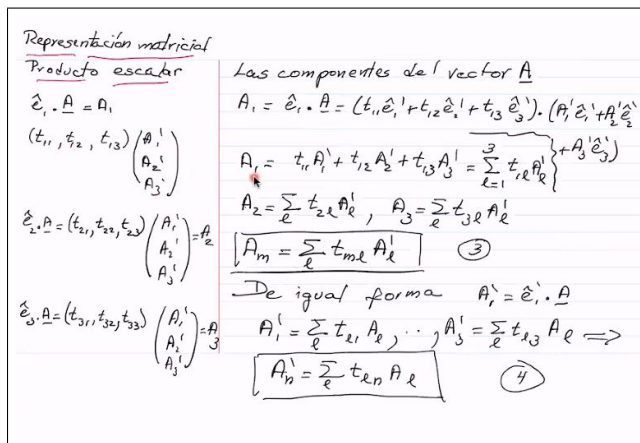 Representación matricial
Producto escalar
ê₁ · A = A₁
(t₁₁, t₁₂, t₁₃) (A₁'
A₂'
A₃')
ê₂ · A = (t₂₁, t₂₂, t₂₃) (A₁'
A₂'
A₃') = A₂
ê₃ · A = (t₃₁, t₃₂, t₃₃) (A₁'
A₂'
A₃') = A₃
Las componentes del vector A
A₁ = ê₁ · A = (t₁₁ê₁' + t₁₂ê₂' + t₁₃ê₃') · (A₁'ê₁' + A₂'ê₂'
+ A₃'ê₃')
A₁ = t₁₁A₁' + t₁₂A₂' + t₁₃A₃' = ∑_{l=1}^{3} t₁ₗAₗ'
A₂ = ∑ₗ t₂ₗ Aₗ' , A₃ = ∑ₗ t₃ₗ Aₗ'
Aₘ = ∑ₗ tₘₗ Aₗ' (3)
De igual forma A₁' = ê₁' · A
A₁' = ∑ₗ tₗ₁ Aₗ , · · , A₃' = ∑ₗ tₗ₃ Aₗ ⟹
Aₙ' = ∑ₗ tₗₙ Aₗ (4)